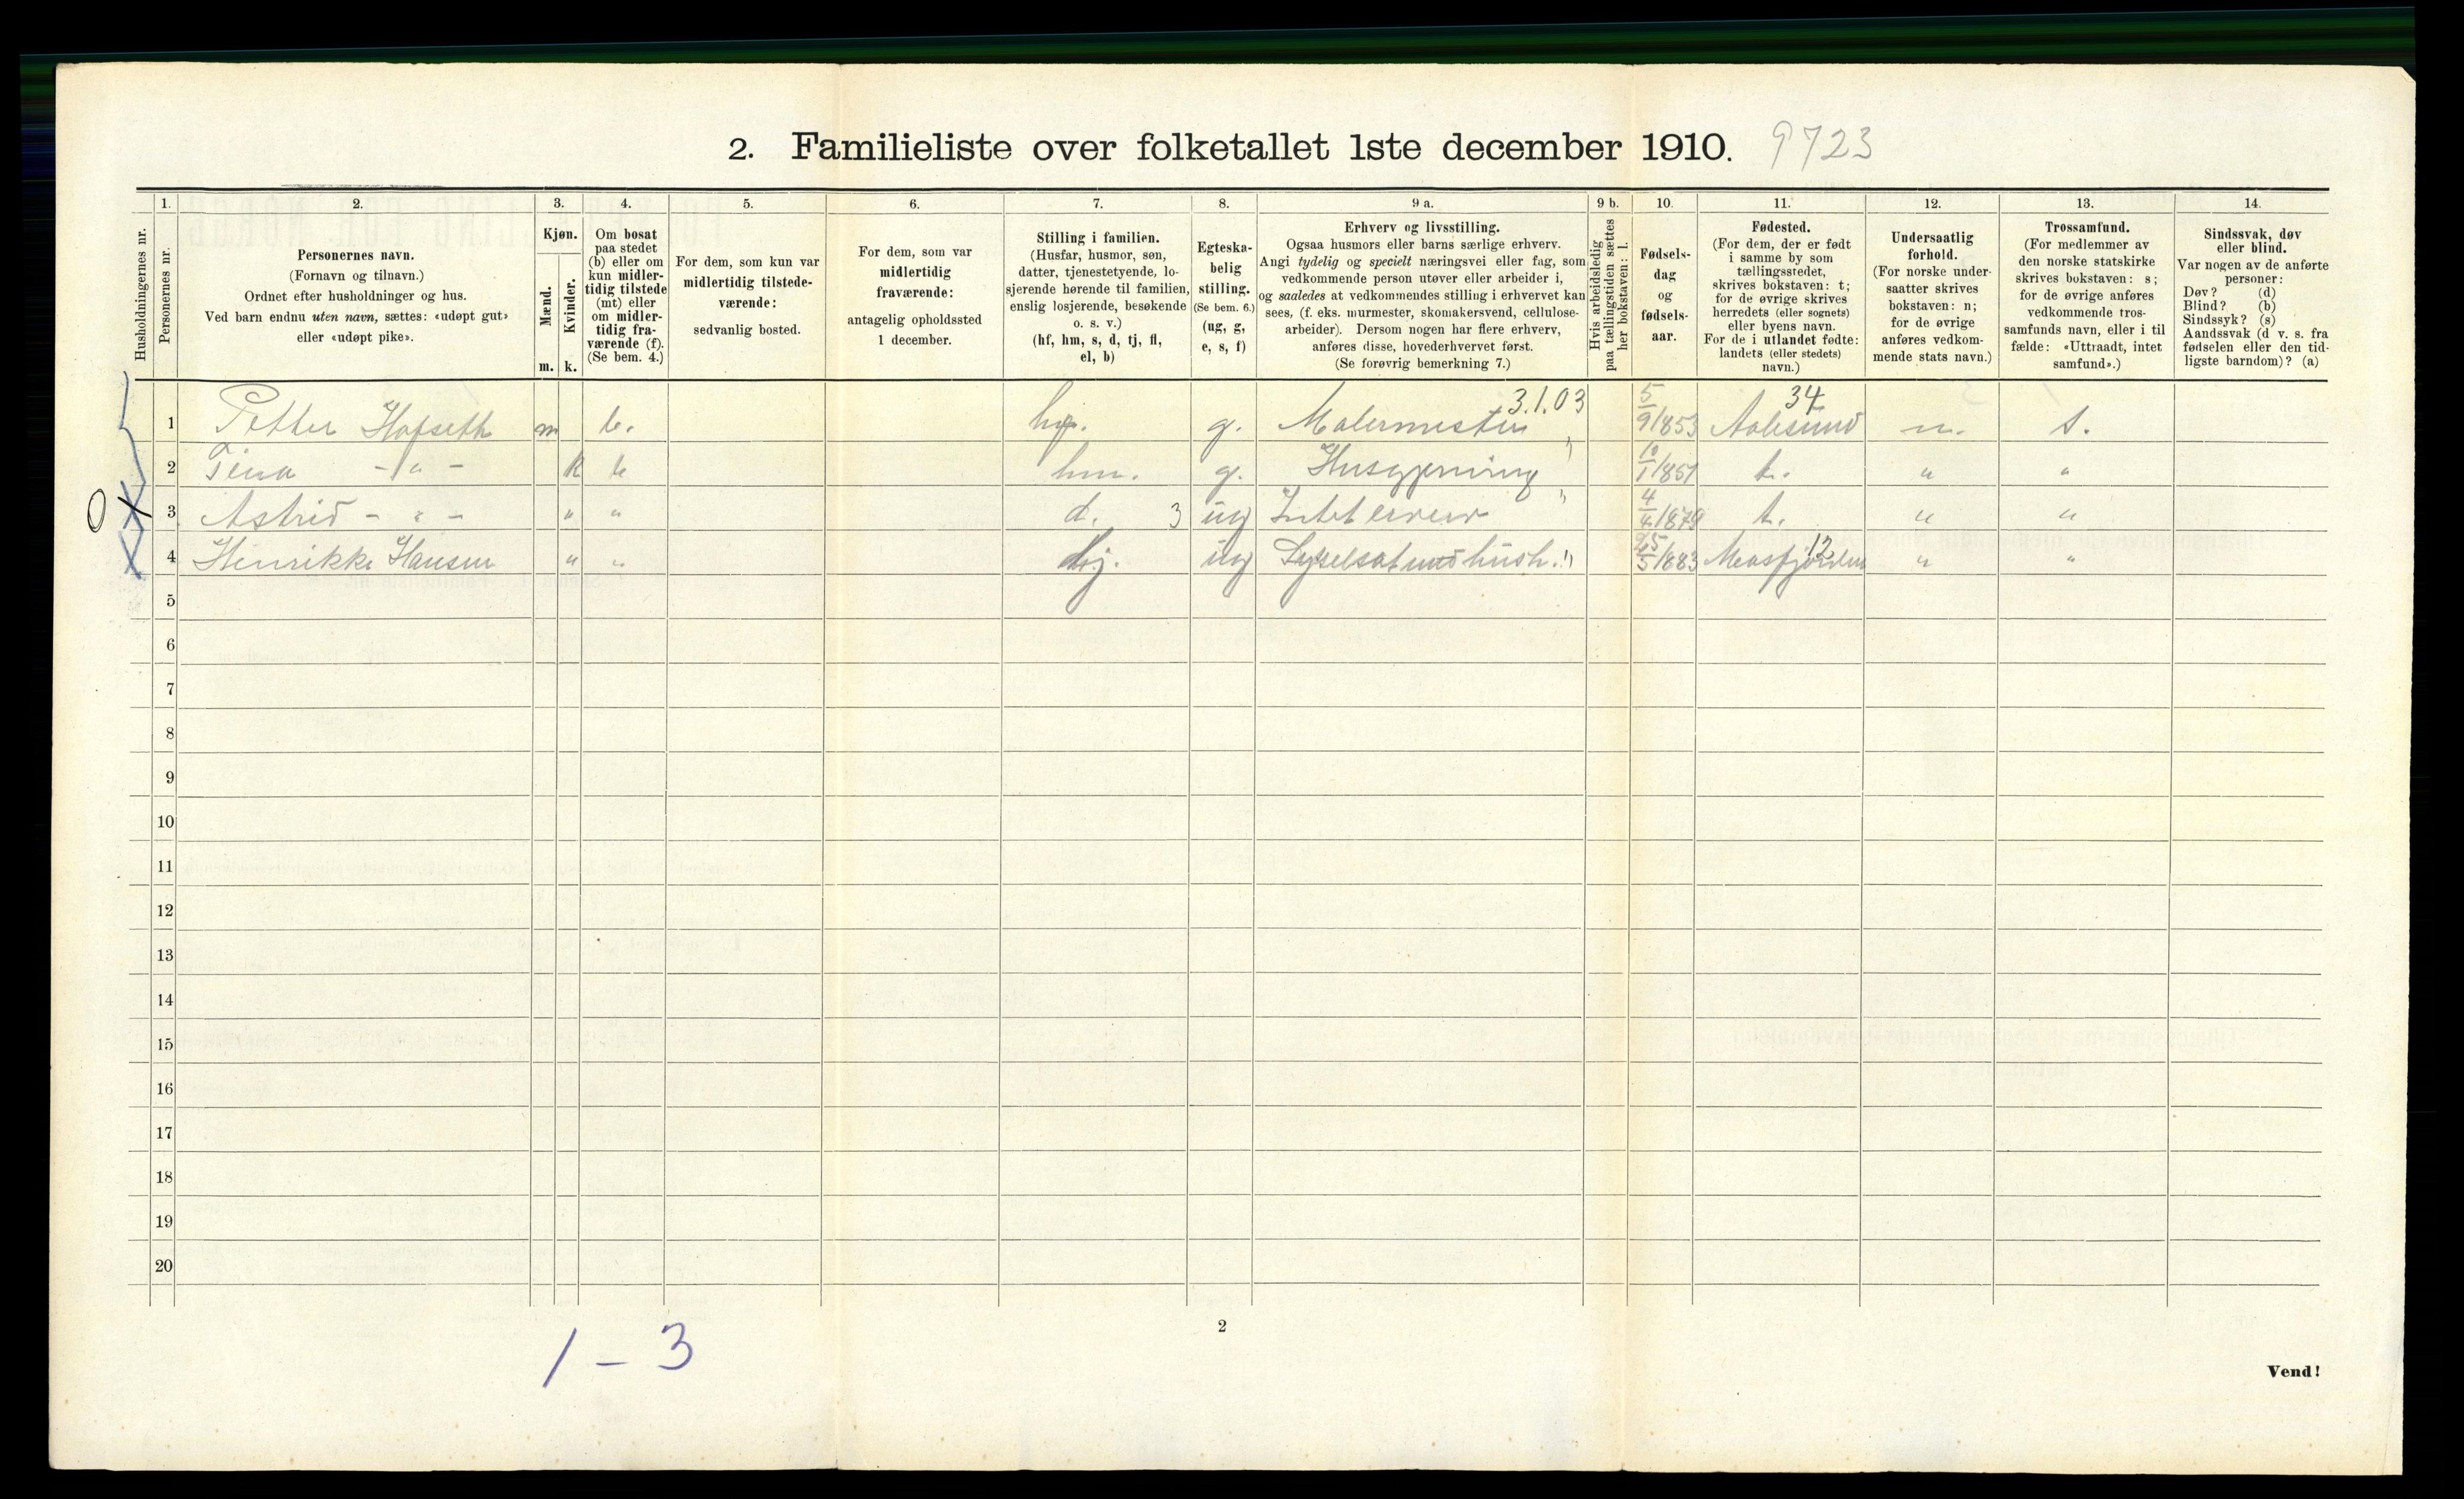 2. Familieliste over folketallet 1ste december 1910. 9723
Husholdningernes nr.
1.
Personernes nr.
2.
Personernes navn.
(Fornavn og tilnavn.)
Ordnet efter husholdninger og hus.
Ved barn endnu uten navn, sættes: «udøpt gut»
eller «udøpt pike».
3.
Kjøn.
Mænd.
Kvinder.
m. k.
4.
Om bosat
paa stedet
(b) eller om
kun midler-
tidig tilstede
(mt) eller
om midler-
tidig fra-
værende (f).
(Se bem. 4.)
5.
For dem, som kun var
midlertidig tilstede-
værende:
sedvanlig bosted.
6.
For dem, som var
midlertidig
fraværende:
antagelig opholdssted
1 december.
7.
Stilling i familien.
(Husfar, husmor, søn,
datter, tjenestetyende, lo-
sjerende hørende til familien,
enslig losjerende, besøkende
o. s. v.)
(hf, hm, s, d, tj, fl,
el, b)
8.
Egteska-
belig
stilling.
(Se bem. 6.)
(ug, g,
e, s, f)
9 a.
Erhverv og livsstilling.
Ogsaa husmors eller barns særlige erhverv.
Angi tydelig og specielt næringsvei eller fag, som
vedkommende person utøver eller arbeider i,
og saaledes at vedkommendes stilling i erhvervet kan
sees, (f. eks. murmester, skomakersvend, cellulose-
arbeider). Dersom nogen har flere erhverv,
anføres disse, hovederhvervet først.
(Se forøvrig bemerkning 7.)
9 b.
Hvis arbeidsledig
paa tællingstiden sættes
her bokstaven: l.
10.
Fødsels-
dag
og
fødsels-
aar.
11.
Fødested.
(For dem, der er født
i samme by som
tællingsstedet,
skrives bokstaven: t;
for de øvrige skrives
herredets (eller sognets)
eller byens navn.
For de i utlandet fødte:
landets (eller stedets)
navn.)
12.
Undersaatlig
forhold.
(For norske under-
saatter skrives
bokstaven: n;
for de øvrige
anføres vedkom-
mende stats navn.)
13.
Trossamfund.
(For medlemmer av
den norske statskirke
skrives bokstaven: s;
for de øvrige anføres
vedkommende tros-
samfunds navn, eller i til
fælde: «Uttraadt, intet
samfund».)
14.
Sindssvak, døv
eller blind.
Var nogen av de anførte
personer:
Døv? (d)
Blind? (b)
Sindssyk? (s)
Aandssvak (d v. s. fra
fødselen eller den tid-
ligste barndom)? (a)
1 Petter Hofseth m b. hf. g. Malermester 3.1.03 5/9 1853 Aalesund 34 n. s.
2 Tina - " - k b hm. g. Husgjerning " 10/1 1851 t. " "
0 X 3 Astrid - " - " " d. 3 ug Intet erverv " 4/4 1879 t. " "
X 4 Henrikke Hansen " " tj. ug Sysselsat med hush. " /5 1883 Masfjorden 12 " "
5
6
7
8
9
10
11
12
13
14
15
16
17
18
19
20
1 - 3
2
Vend!